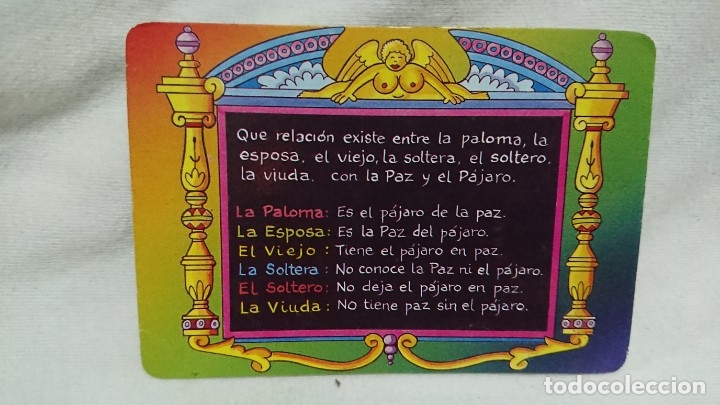 Que relación existe entre la paloma, la
esposa, el viejo, la soltera, el soltero,
la viuda, con la Paz y el Pájaro.
La Paloma: Es el pájaro de la paz.
La Esposa: Es la Paz del pájaro.
El Viejo: Tiene el pájaro en paz.
La Soltera: No conoce la Paz ni el pájaro.
El Soltero: No deja el pájaro en paz.
La Viuda: No tiene paz sin el pájaro.
todocoleccion.net